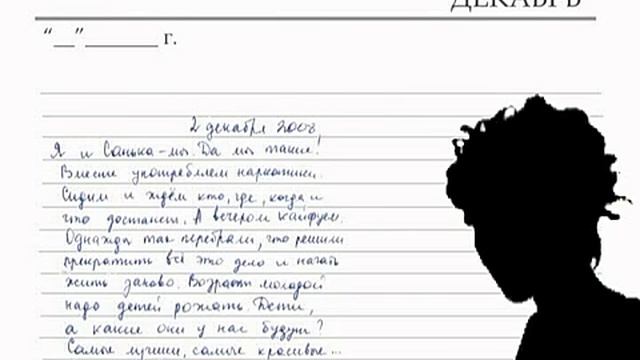 ДЕКАБРЬ
“__”________ г.
2 декабря 2008
Я и Санька-мы. Да мы такие!
Вместе употребляем наркотики.
Сидим и ждём кто, где, когда и
что достанет. А вечером кайфуем.
Однажды так перебрали, что решили
прекратить всё это дело и начать
жить заново. Возраст молодой
надо детей рожать. Дети,
а какие они у нас будут?
Самые лучшие, самые красивые...